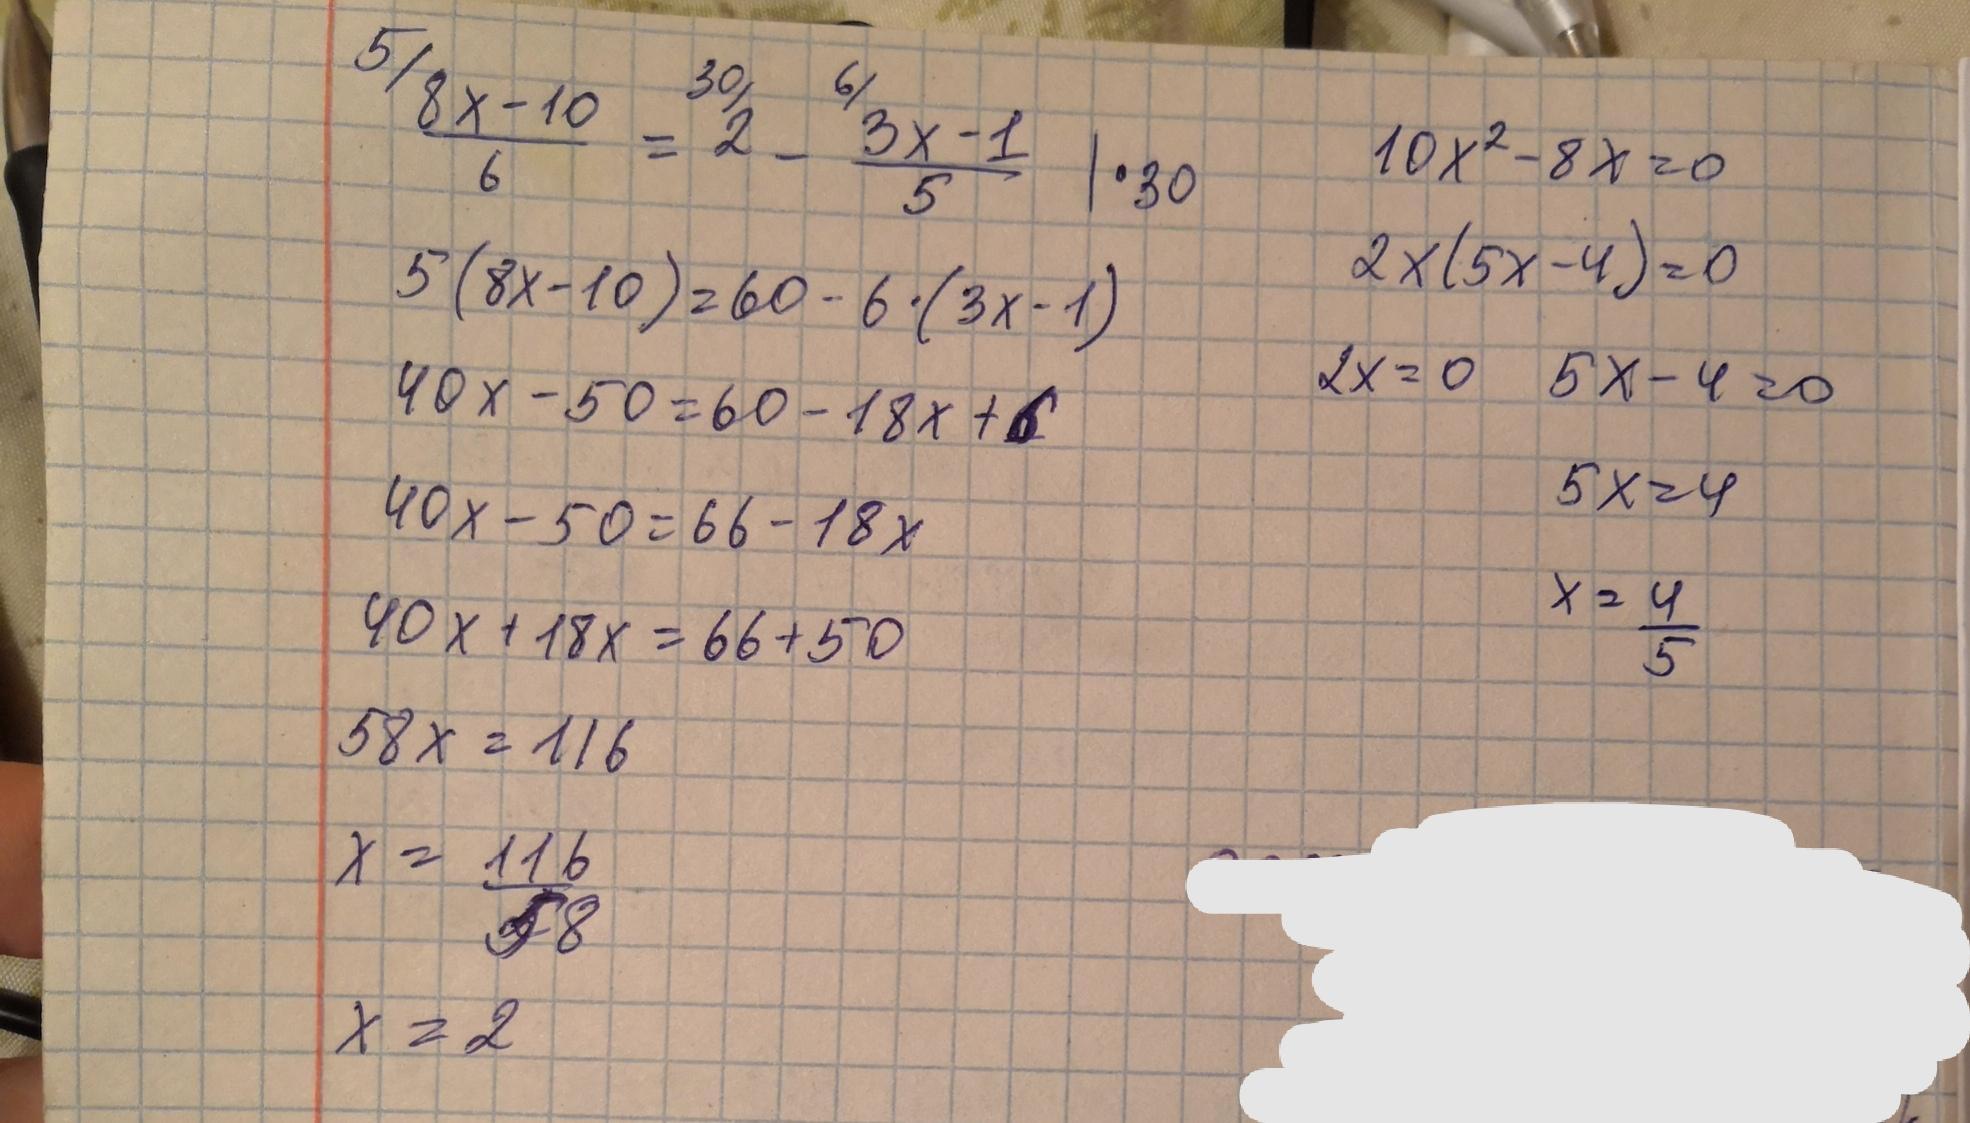 5/ 8x-10 / 6 = 30/ 2 - 6/ 3x-1 / 5 | •30
5(8x-10)=60-6·(3x-1)
40x-50=60-18x+6
40x-50=66-18x
40x+18x=66+50
58x=116
x = 116/58
x = 2
10x²-8x=0
2x(5x-4)=0
2x=0 5x-4=0
5x=4
x = 4/5